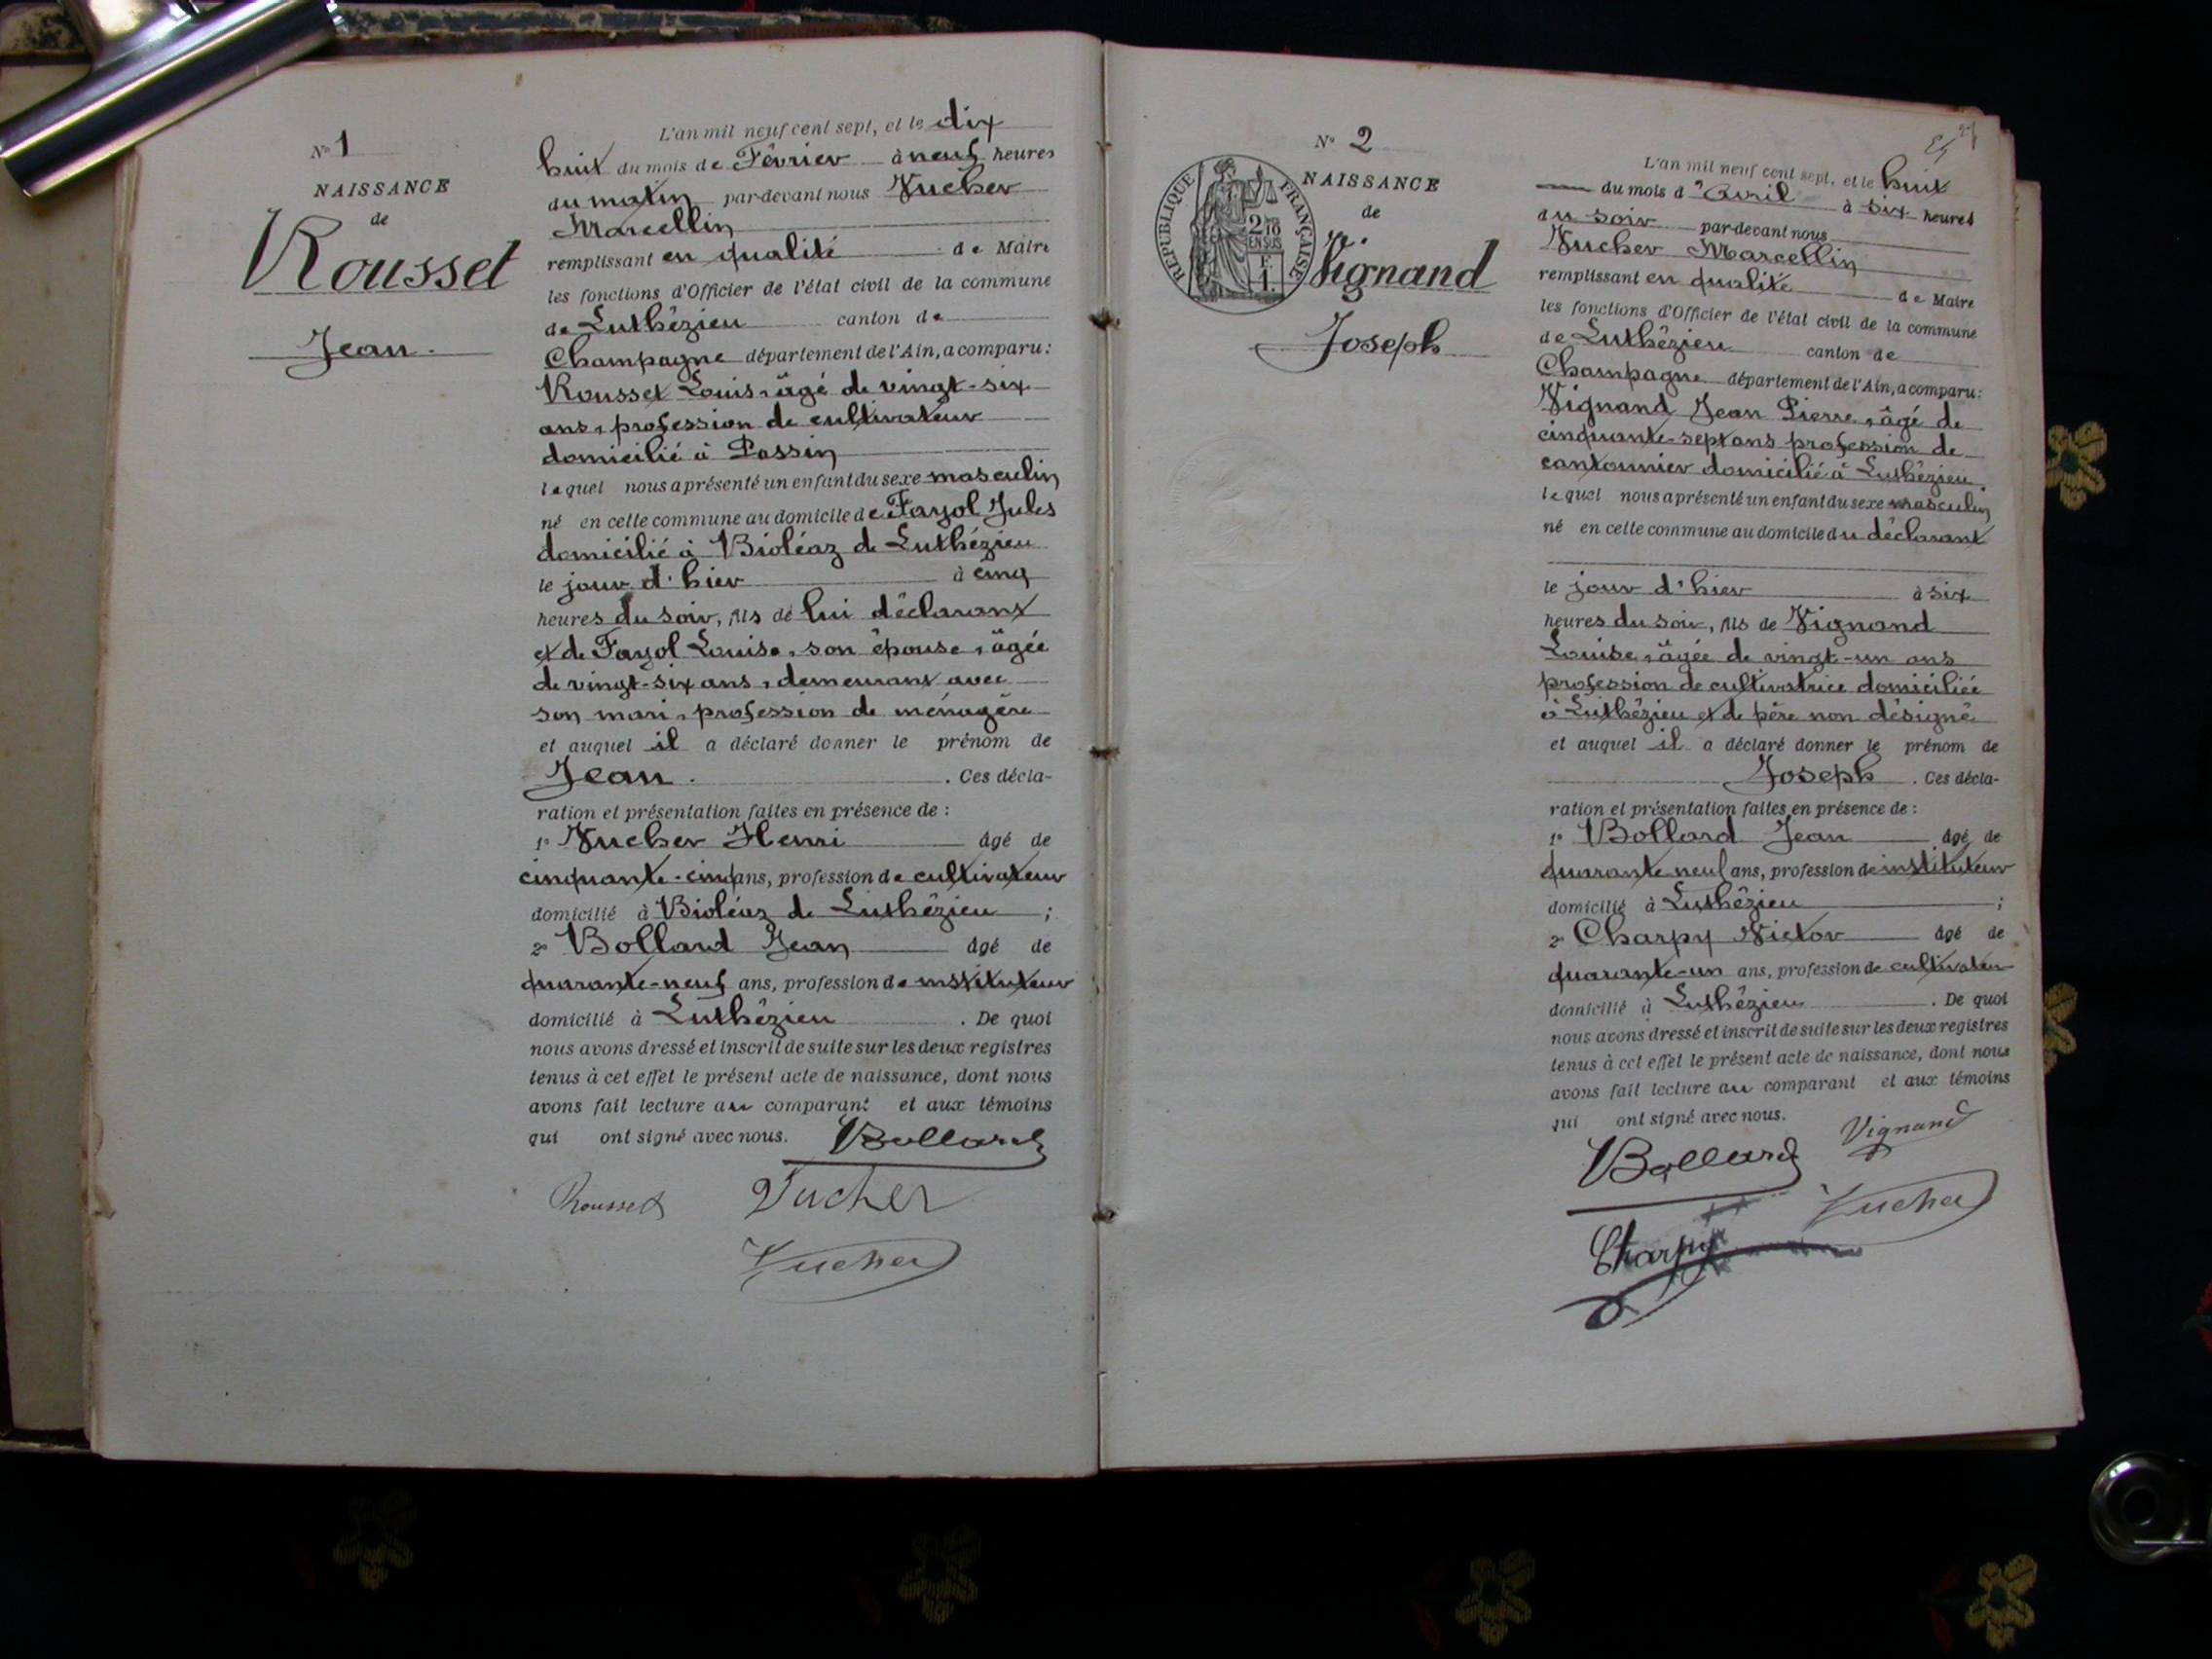 N° 1
NAISSANCE
de
Rousset
Jean.
L'an mil neuf cent sept, et le dix
huit du mois de Février à neuf heures
du matin par-devant nous Vucher
Marcellin
remplissant en qualité de Maire
les fonctions d'Officier de l'état civil de la commune
de Luthézieu canton de
Champagne département de l'Ain, a comparu:
Rousset Louis, âgé de vingt-six
ans, profession de cultivateur
domicilié à Passin
lequel nous a présenté un enfant du sexe masculin
né en cette commune au domicile de Fayol Jules
domicilié à Bioléaz de Luthézieu
le jour d'hier à cinq
heures du soir, fils de lui déclarant
et de Fayol Louise, son épouse, âgée
de vingt-six ans, demeurant avec
son mari, profession de ménagère
et auquel il a déclaré donner le prénom de
Jean. . Ces décla-
ration et présentation faites en présence de :
1° Vucher Henri âgé de
cinquante-cinq ans, profession de cultivateur
domicilié à Bioléaz de Luthézieu ;
2° Bollard Jean âgé de
quarante-neuf ans, profession de instituteur
domicilié à Luthézieu . De quoi
nous avons dressé et inscrit de suite sur les deux registres
tenus à cet effet le présent acte de naissance, dont nous
avons fait lecture au comparant et aux témoins
qui ont signé avec nous. Bollard
Rousset Vucher
Vucher
N° 2
NAISSANCE
de
Vignand
Joseph
RÉPUBLIQUE FRANÇAISE
2/10
EN SUS
F.
1.
L'an mil neuf cent sept, et le huit
du mois d'Avril à six heures
du soir par-devant nous
Vucher Marcellin
remplissant en qualité de Maire
les fonctions d'Officier de l'état civil de la commune
de Luthézieu canton de
Champagne département de l'Ain, a comparu:
Vignand Jean Pierre, âgé de
cinquante-sept ans profession de
cantonnier domicilié à Luthézieu.
lequel nous a présenté un enfant du sexe masculin
né en cette commune au domicile du déclarant
le jour d'hier à six
heures du soir, fils de Vignand
Louise, âgée de vingt-un ans
profession de cultivatrice domiciliée
à Luthézieu et de père non désigné
et auquel il a déclaré donner le prénom de
Joseph . Ces décla-
ration et présentation faites en présence de :
1° Bollard Jean âgé de
quarante neuf ans, profession de instituteur
domicilié à Luthézieu ;
2° Charpy Victor âgé de
quarante-un ans, profession de cultivateur
domicilié à Luthézieu . De quoi
nous avons dressé et inscrit de suite sur les deux registres
tenus à cet effet le présent acte de naissance, dont nous
avons fait lecture au comparant et aux témoins
qui ont signé avec nous. Vignand
Bollard
Vucher
Charpy